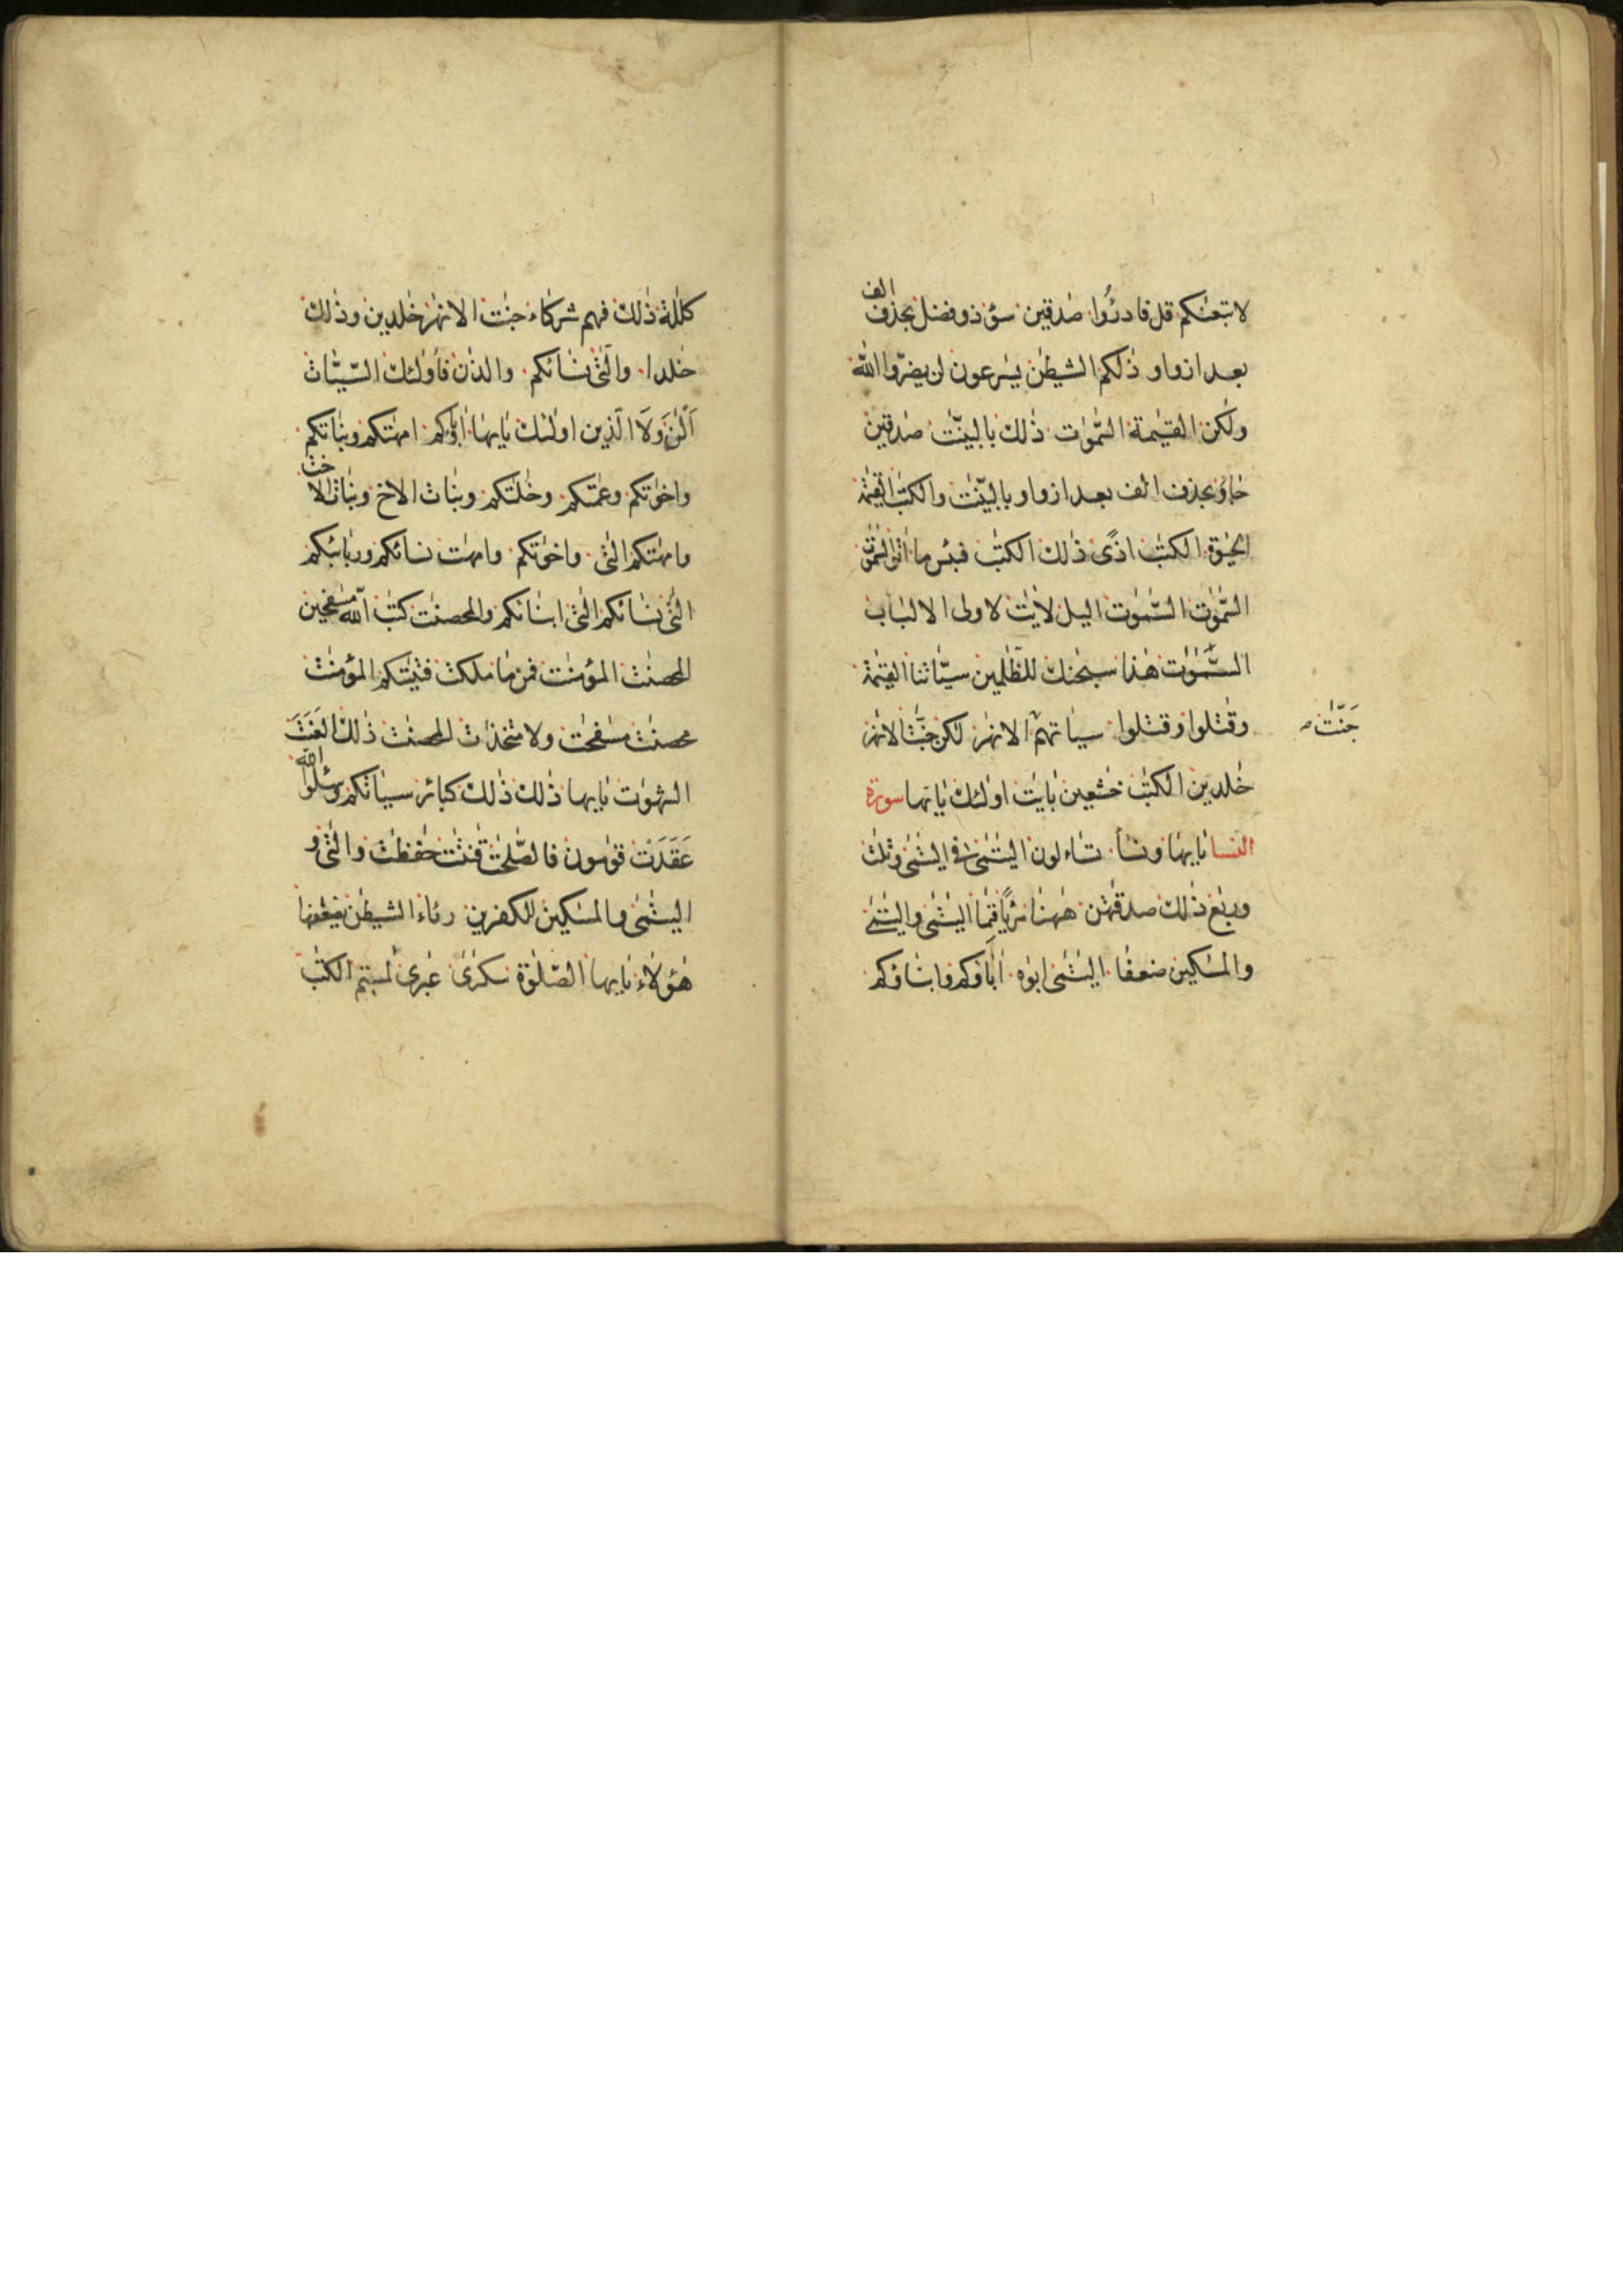 لا تبعنٰكم قل فادرؤا صٰدقين سؤ ذو فضل بحذف الف
بعد از واو ذٰلكم الشيطٰن يسٰرعون لن يضرّوا اللّٰه
ولٰكن القيٰمة السّمٰوٰت ذٰلك بالبيّنٰت صٰدقين
جاؤ بحذف الف بعد از واو بالبيّنٰت والكتٰب القيٰمة
الحيٰوة الكتٰب اذًى ذٰلك الكتٰب فبئس ما
السّمٰوٰت السّمٰوٰت اليل لاٰيٰت لاولى الالباب
السّمٰوٰت هٰذا سبحٰنك للظّٰلمين سيّاٰتنا القيٰمة
وقٰتلوا وقتلوا سياٰتهم الانهٰر لٰكن جنّٰت الانهٰر
جَنّٰت
خٰلدين الكتٰب خٰشعين باٰيٰت اولئك يٰايها سورة
النسا يٰايها ونسأ تساءلون اليتٰمٰى فى اليتٰمٰى وثلٰث
وربٰع ذٰلك صدقٰتهن هنئا مرئا قيٰما اليتٰمٰى واليتٰمٰى
والمسٰكين ضعٰفا اليتٰمٰى ابوٰه اٰباؤكم وابناؤكم
كلٰلة ذٰلك فهم شركاء جنٰت الانهٰر خٰلدين وذٰلك
خٰلدا والّٰتى نسائكم والذٰن فأولئك السّيّاٰت
اَلْٰٔنَ وَلَا الّذين اولئك يٰايها اٰباؤكم امهٰتكم وبنٰاتكم
واخوٰتكم وعمّٰتكم وخٰلٰتكم وبنٰات الاخ وبنٰات الاخت
وامهٰتكم الّٰتى واخوٰتكم وامهٰت نسائكم وربائبكم
الّٰتى نسائكم الّٰتى ابنائكم والمحصنٰت كتٰب اللّٰه مسٰفحين
المحصنٰت المؤمنٰت فمن ما ملكت فتيٰتكم المؤمنٰت
محصنٰت مسٰفحٰت ولا متخذٰت المحصنٰت ذٰلك العَنَتَ
الشهوٰت يٰايها ذٰلك ذٰلك كبائر سياٰتكم وسئلوا اللّٰه
عَقَدَت قوٰمون فالصّٰلحٰت قٰنتٰت حٰفظٰت والّٰتى و
اليتٰمٰى والمسٰكين للكٰفرين رئاء الشيطٰن يضٰعفها
هٰؤلاء يٰايها الصّلٰوة سكٰرٰى عٰبرى لٰمستم الكتٰب